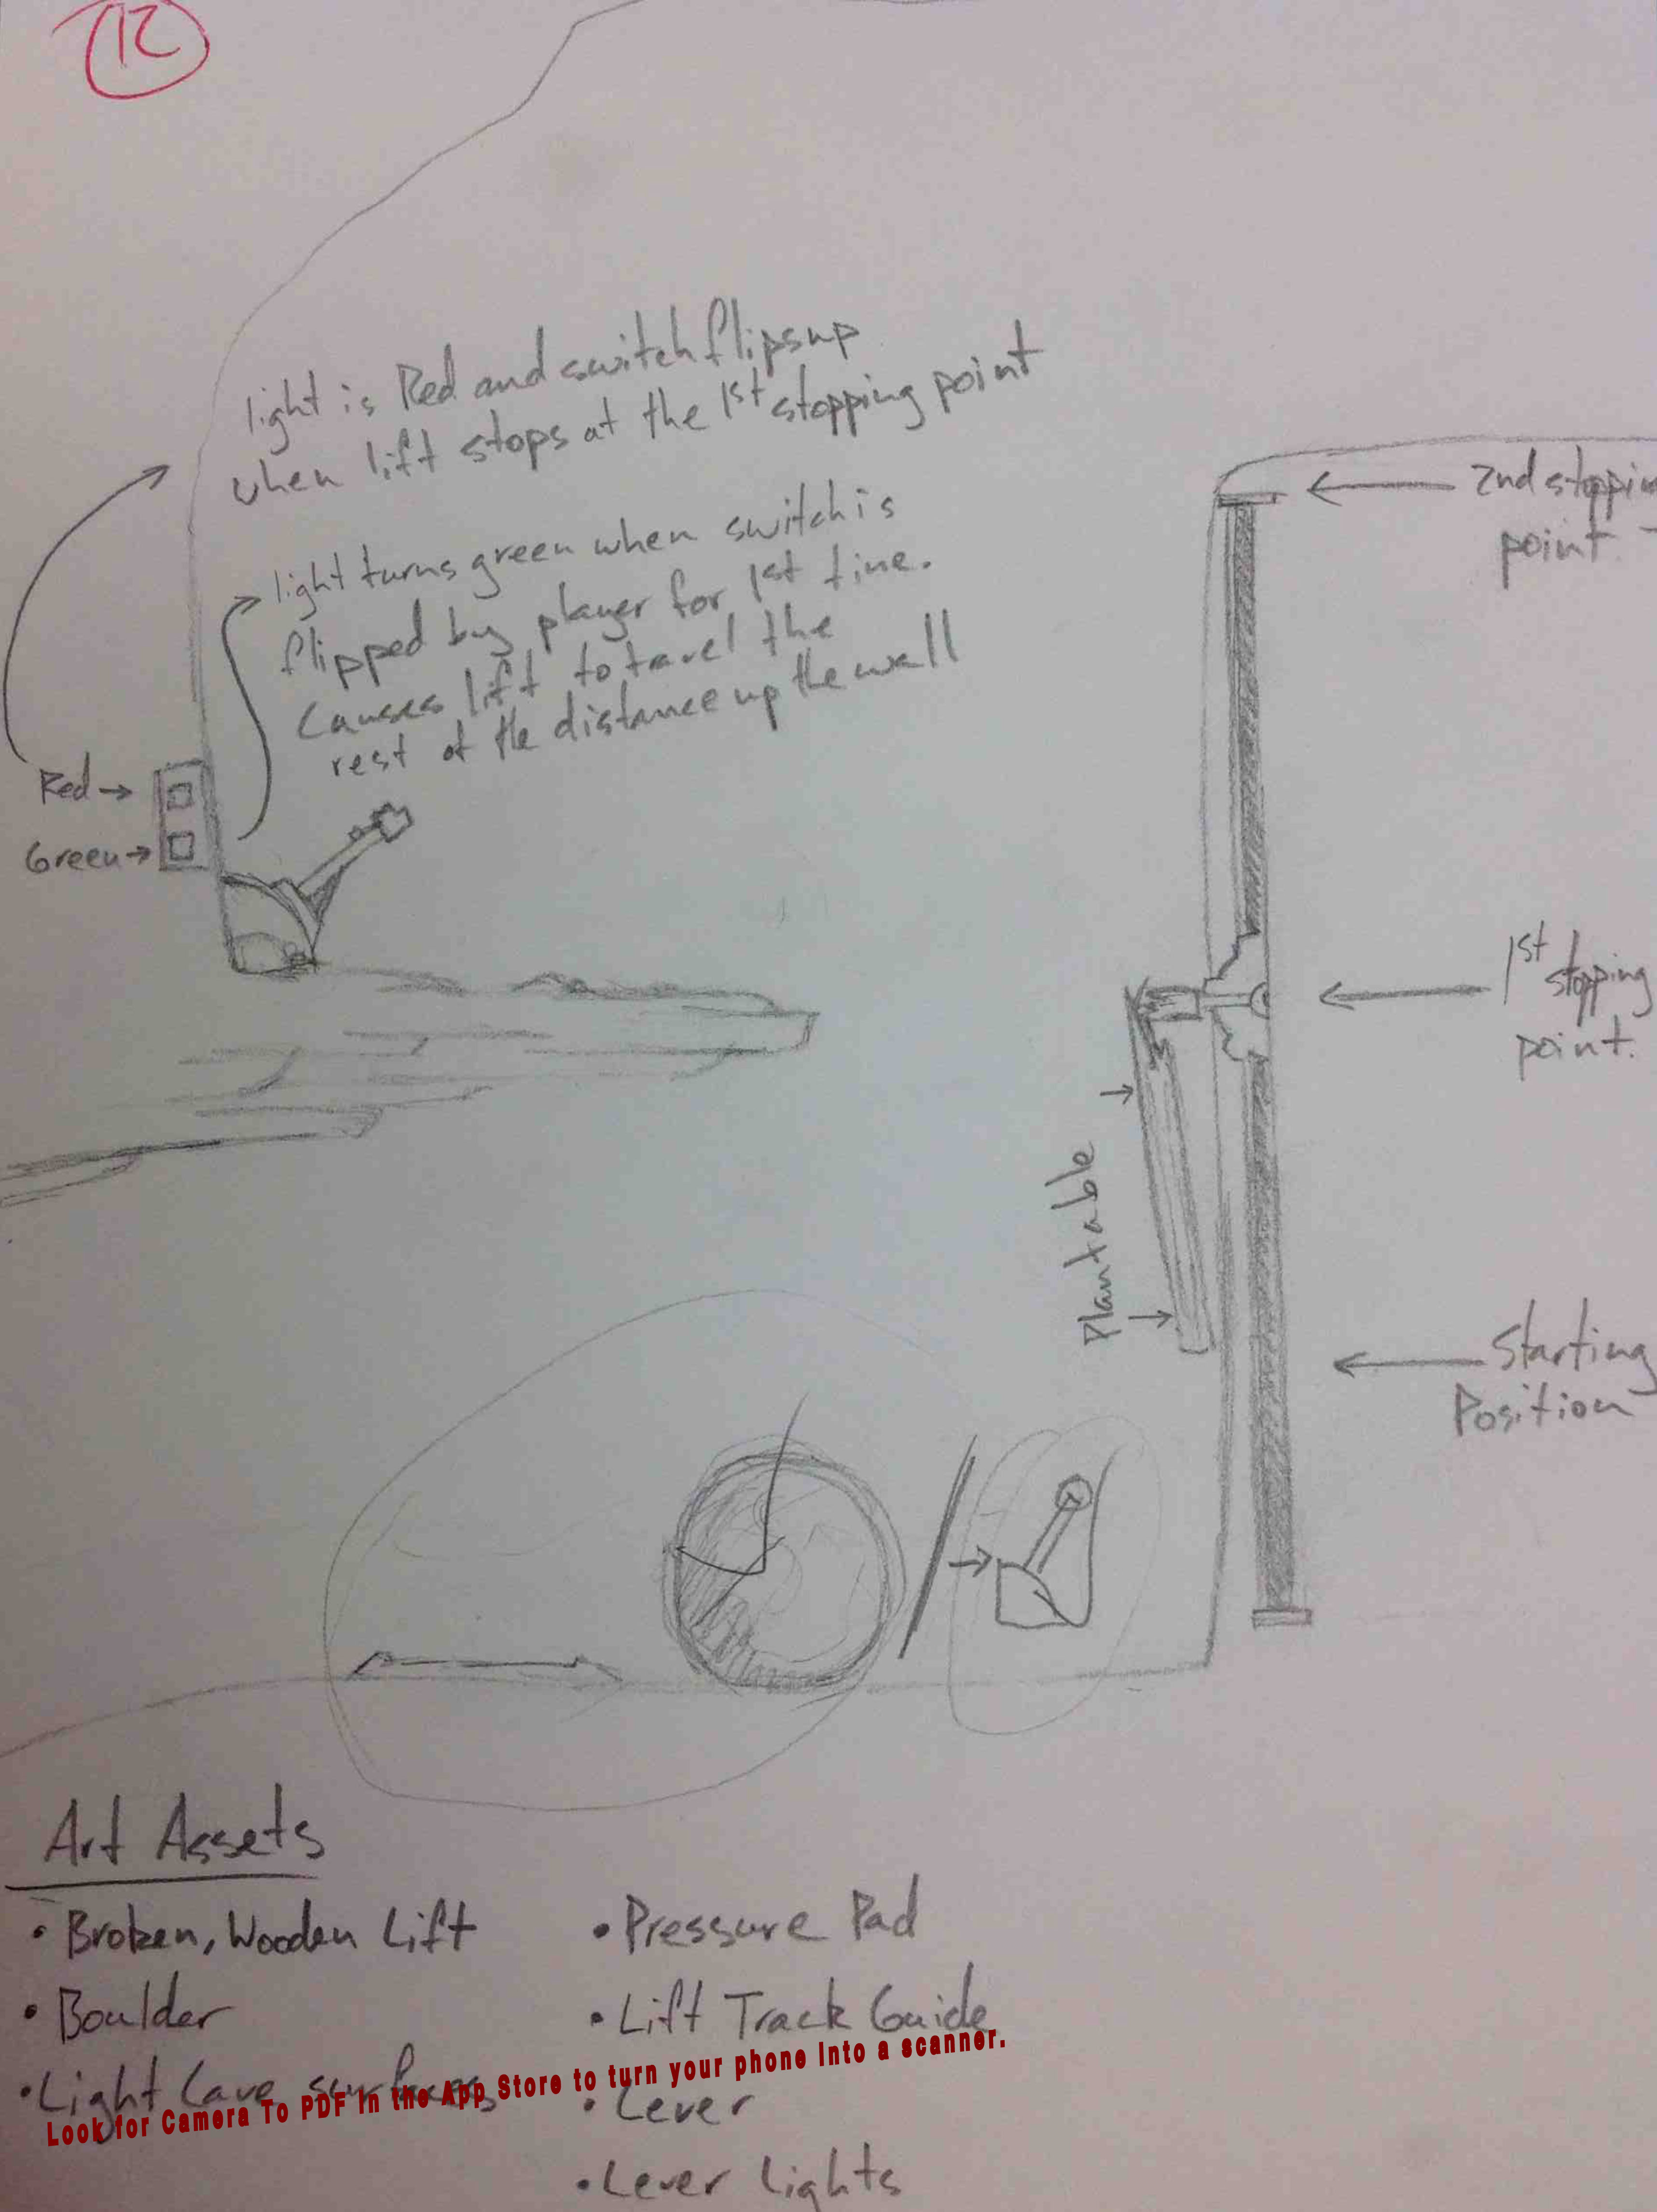 12
light is Red and switch flips up
when lift stops at the 1st stopping point
light turns green when switch is
flipped by player for 1st time.
Causes lift to travel the
rest of the distance up the wall
Red →
Green →
2nd stoppin
point
1st
stopping
point.
Plantable
Starting
Position
Art Assets
• Broken, Wooden Lift
• Boulder
• Light Cave surfaces
• Pressure Pad
• Lift Track Guide
• Lever
• Lever Lights
Look for Camera To PDF in the App Store to turn your phone into a scanner.